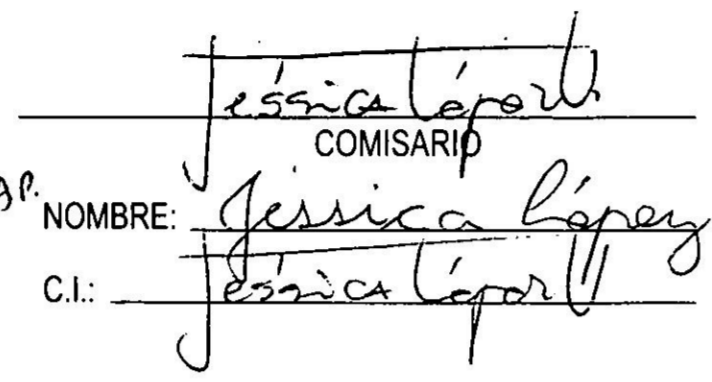 Jéssica López
COMISARIO
NOMBRE: Jéssica López
C.I.: Jéssica López